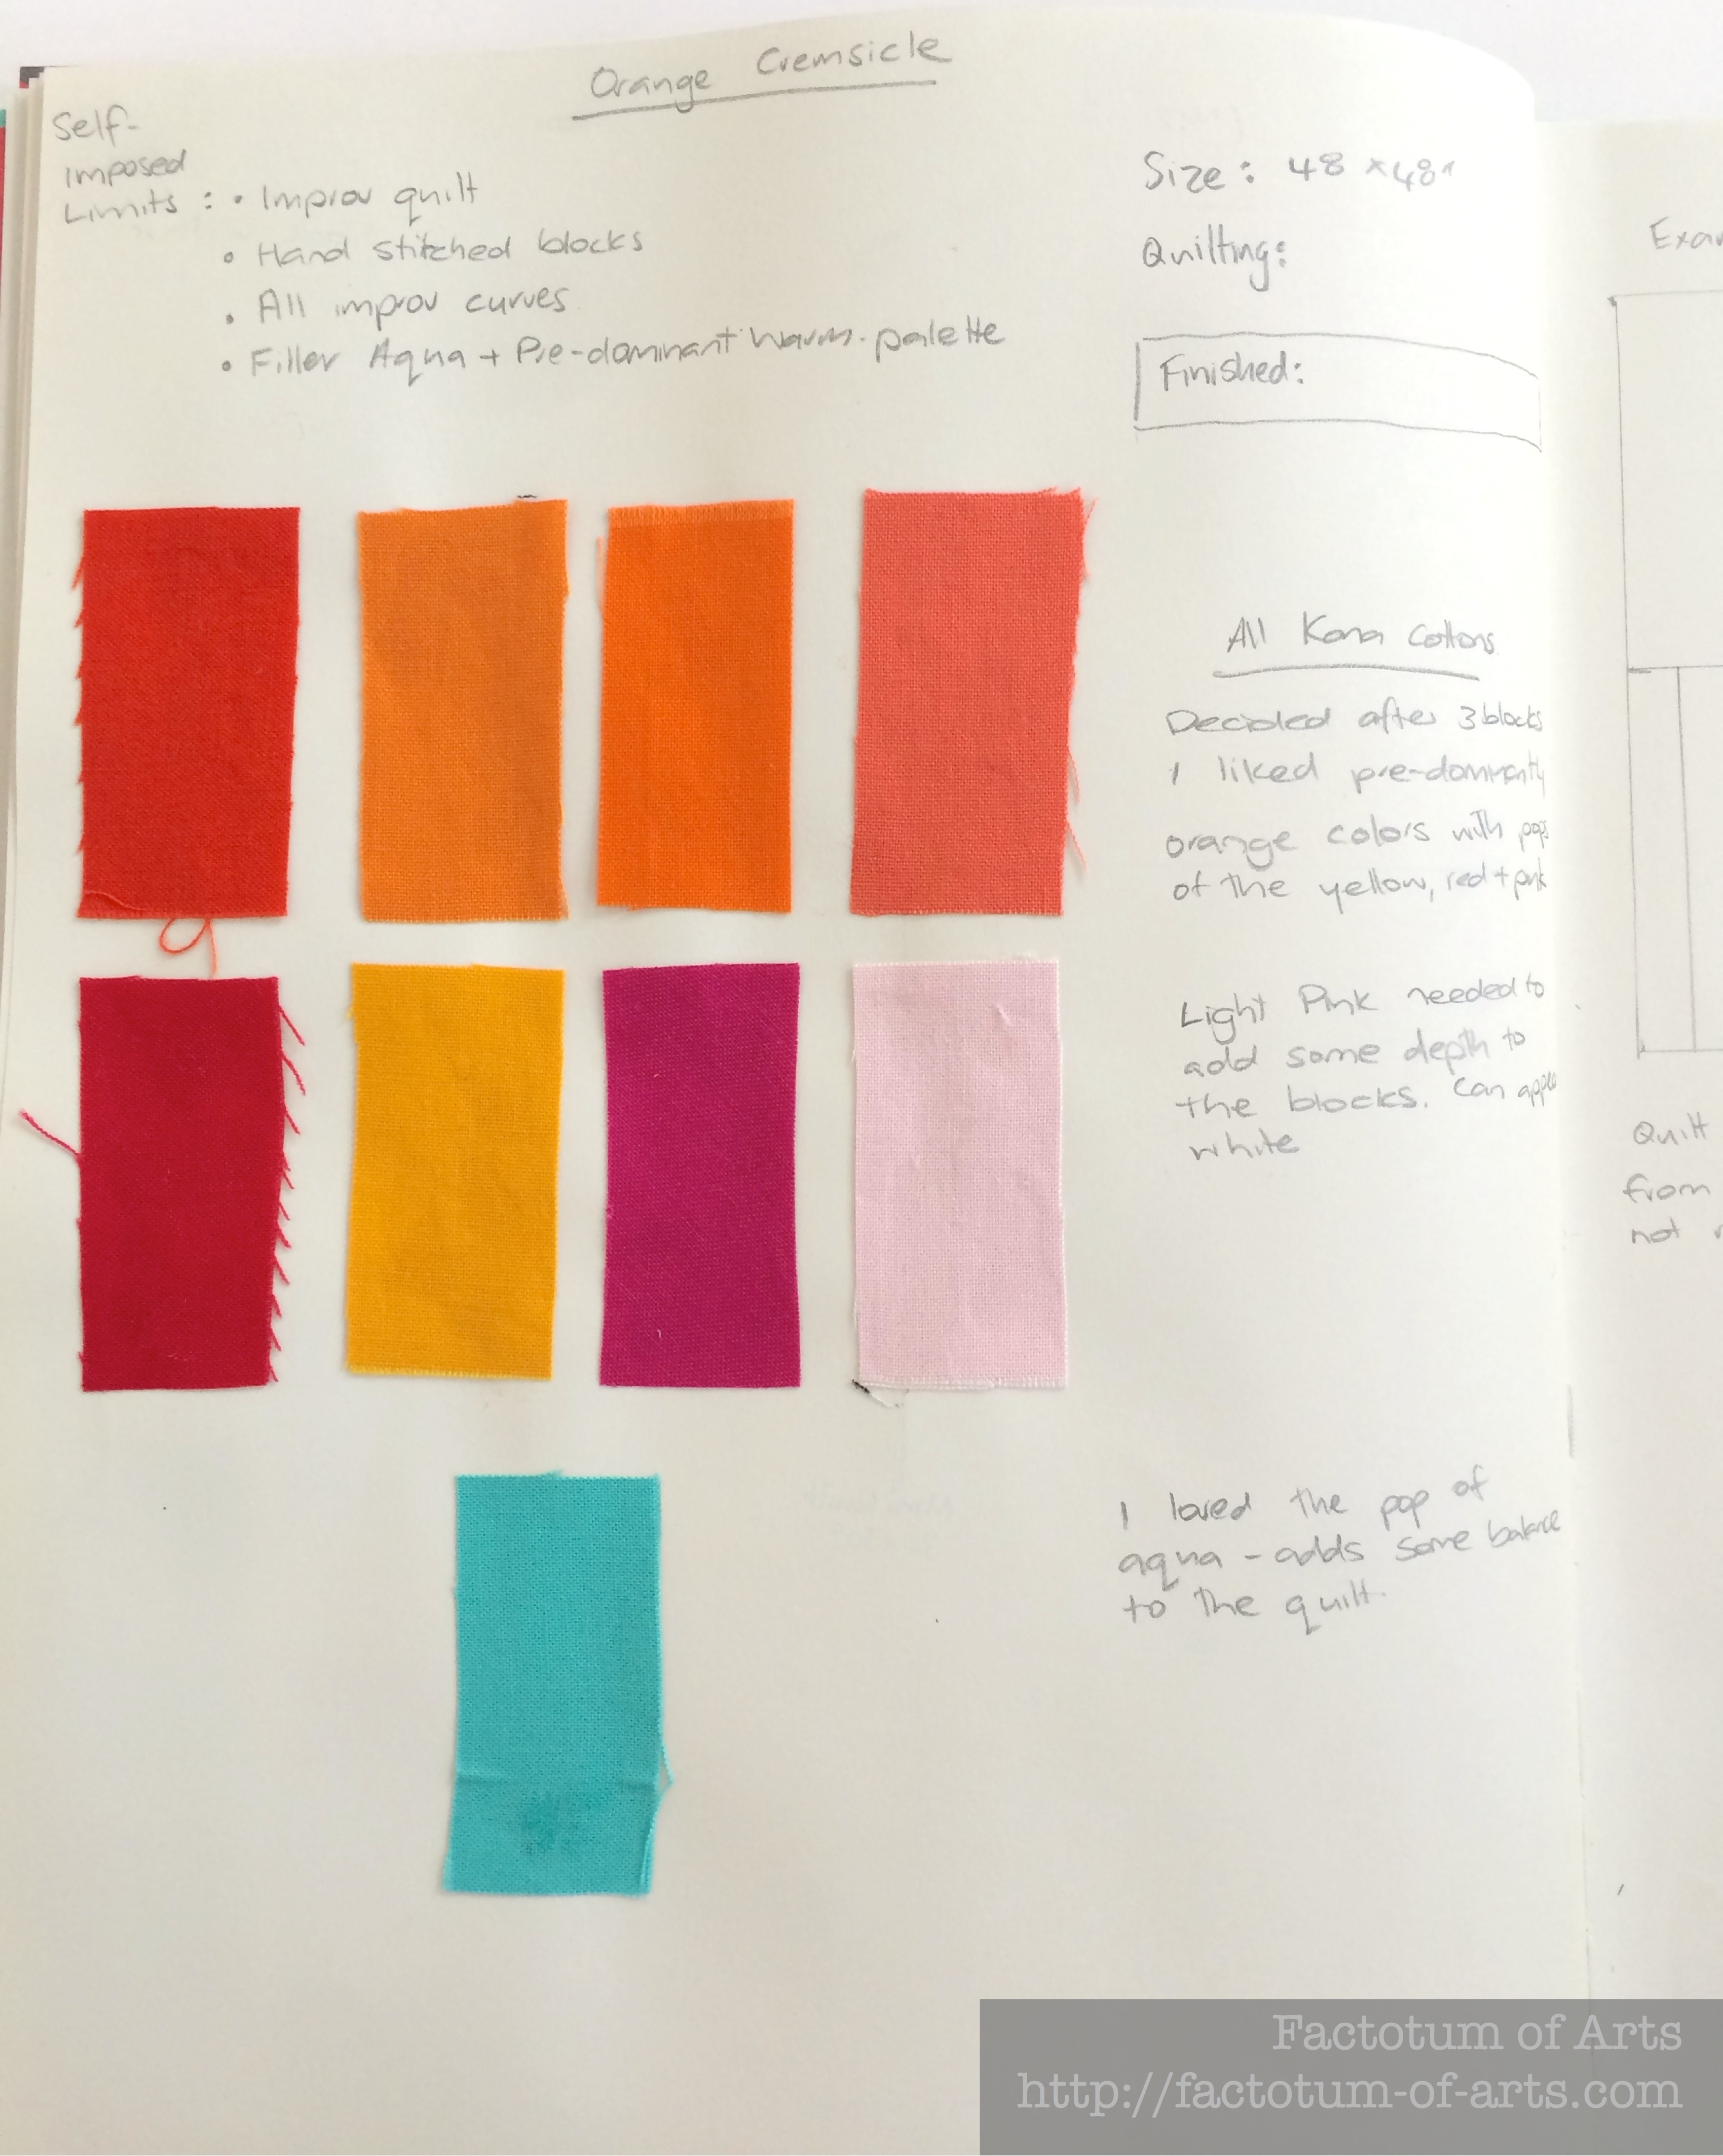 Orange Cremsicle
Self-
Imposed
Limits : • Improv quilt
• Hand stitched blocks
• All improv curves
• Filler Aqua + Pre-dominant warm palette
Size: 48 x 48"
Quilting:
Finished:
All Kona Cottons
Decided after 3 blocks
I liked pre-dominantly
orange colors with pops
of the yellow, red + pink
Light Pink needed to
add some depth to
the blocks. Can appear
white
I loved the pop of
aqua - adds some balance
to the quilt.
Exam
Quilt
from
not
Factotum of Arts
http://factotum-of-arts.com